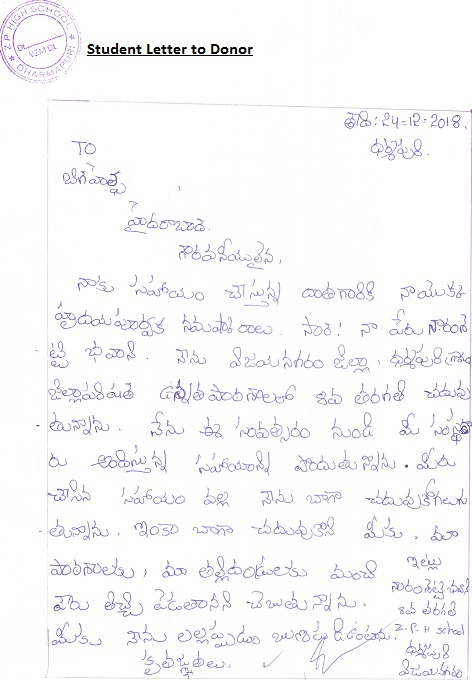 Z.P HIGH SCHOOL
VZM Dt.
DHARMAPURI
Student Letter to Donor
తేది: 24-12-2018,
ధర్మపురి.
TO
బిగ్ హెల్ప్
హైదరాబాద్.
గౌరవనీయులైన,
నాకు సహాయం చేస్తున్న దాతగారికి నాయొక్క
హృదయపూర్వక నమస్కారాలు. సార్! నా పేరు సారంశె
ట్టి భవాని. నేను విజయనగరం జిల్లా, ధర్మపురి గ్రామ
జిల్లాపరిషత్ ఉన్నత పాఠశాలలో 8వ తరగతి చదువు
తున్నాను. నేను ఈ సంవత్సరం నుండి మీ సంస్థవా
రు అందిస్తున్న సహాయాన్ని పొందుతున్నాను. మీరు
చేసిన సహాయం వల్ల నేను బాగా చదువుకోగలుగు
తున్నాను. ఇంకా బాగా చదువుకొని మీకు, మా
పాఠశాలకు, మా తల్లిదండ్రులకు మంచి
పేరు తెచ్చి పెడతానని చెబుతున్నాను.
మీకు నేను ఎల్లప్పుడూ ఋణపడి ఉంటాను.
కృతజ్ఞతలు.
ఇట్లు
సారంశెట్టి భవాని
8వ తరగతి
Z.P.H school
ధర్మపురి
విజయనగరం